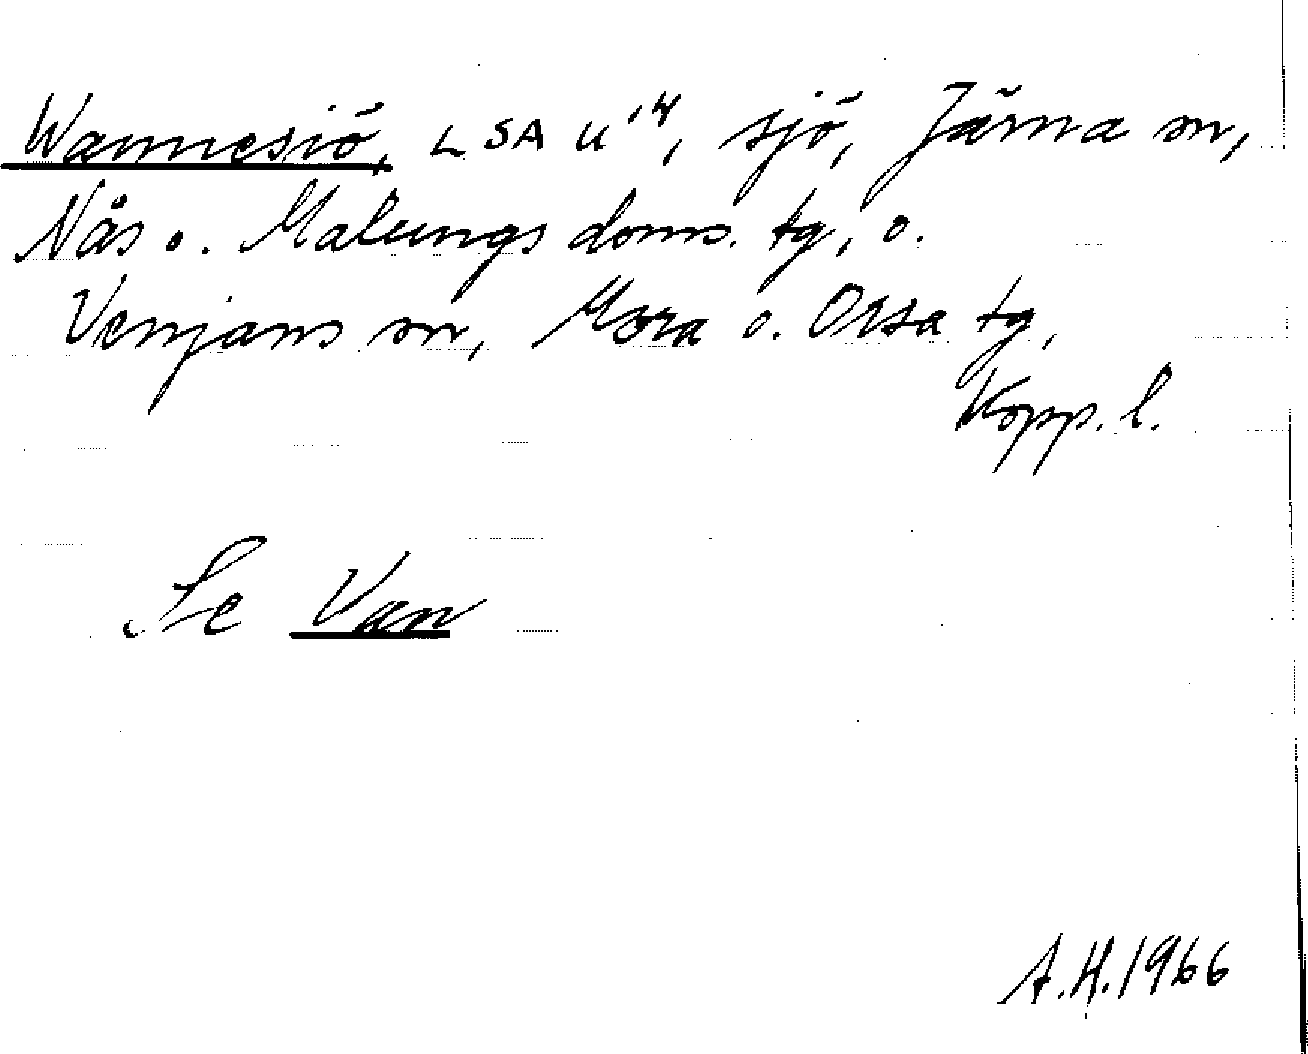 Wannesiö, LSA U'4, sjö, Järna sn,
Nås o. Malungs doms. tg, o.
Venjans sn, Mora o. Orsa tg,
Kopp. l.
Se Van
A.H. 1966